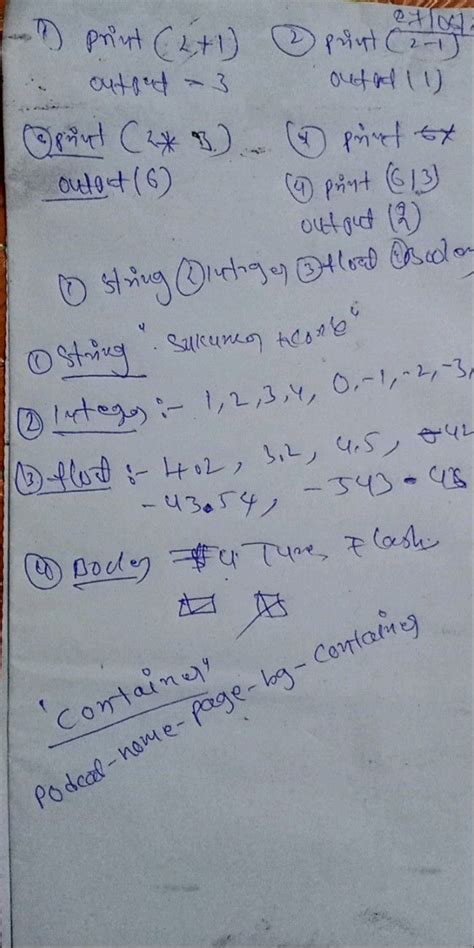 ① print (2+1) ② print (2-1)
output = 3 output (1)
③ print (2* 3) ④ print
output (6) ④ print (6/3)
output (2)
① string ② Integer ③ float ④ Boolen
① String "
② Integer :- 1, 2, 3, 4, 0, -1, -2, -3,
③ float :- 4.2, 3.2, 4.5, -42
-43.54, -343.48
④
"Container"
-home-page-bg-container